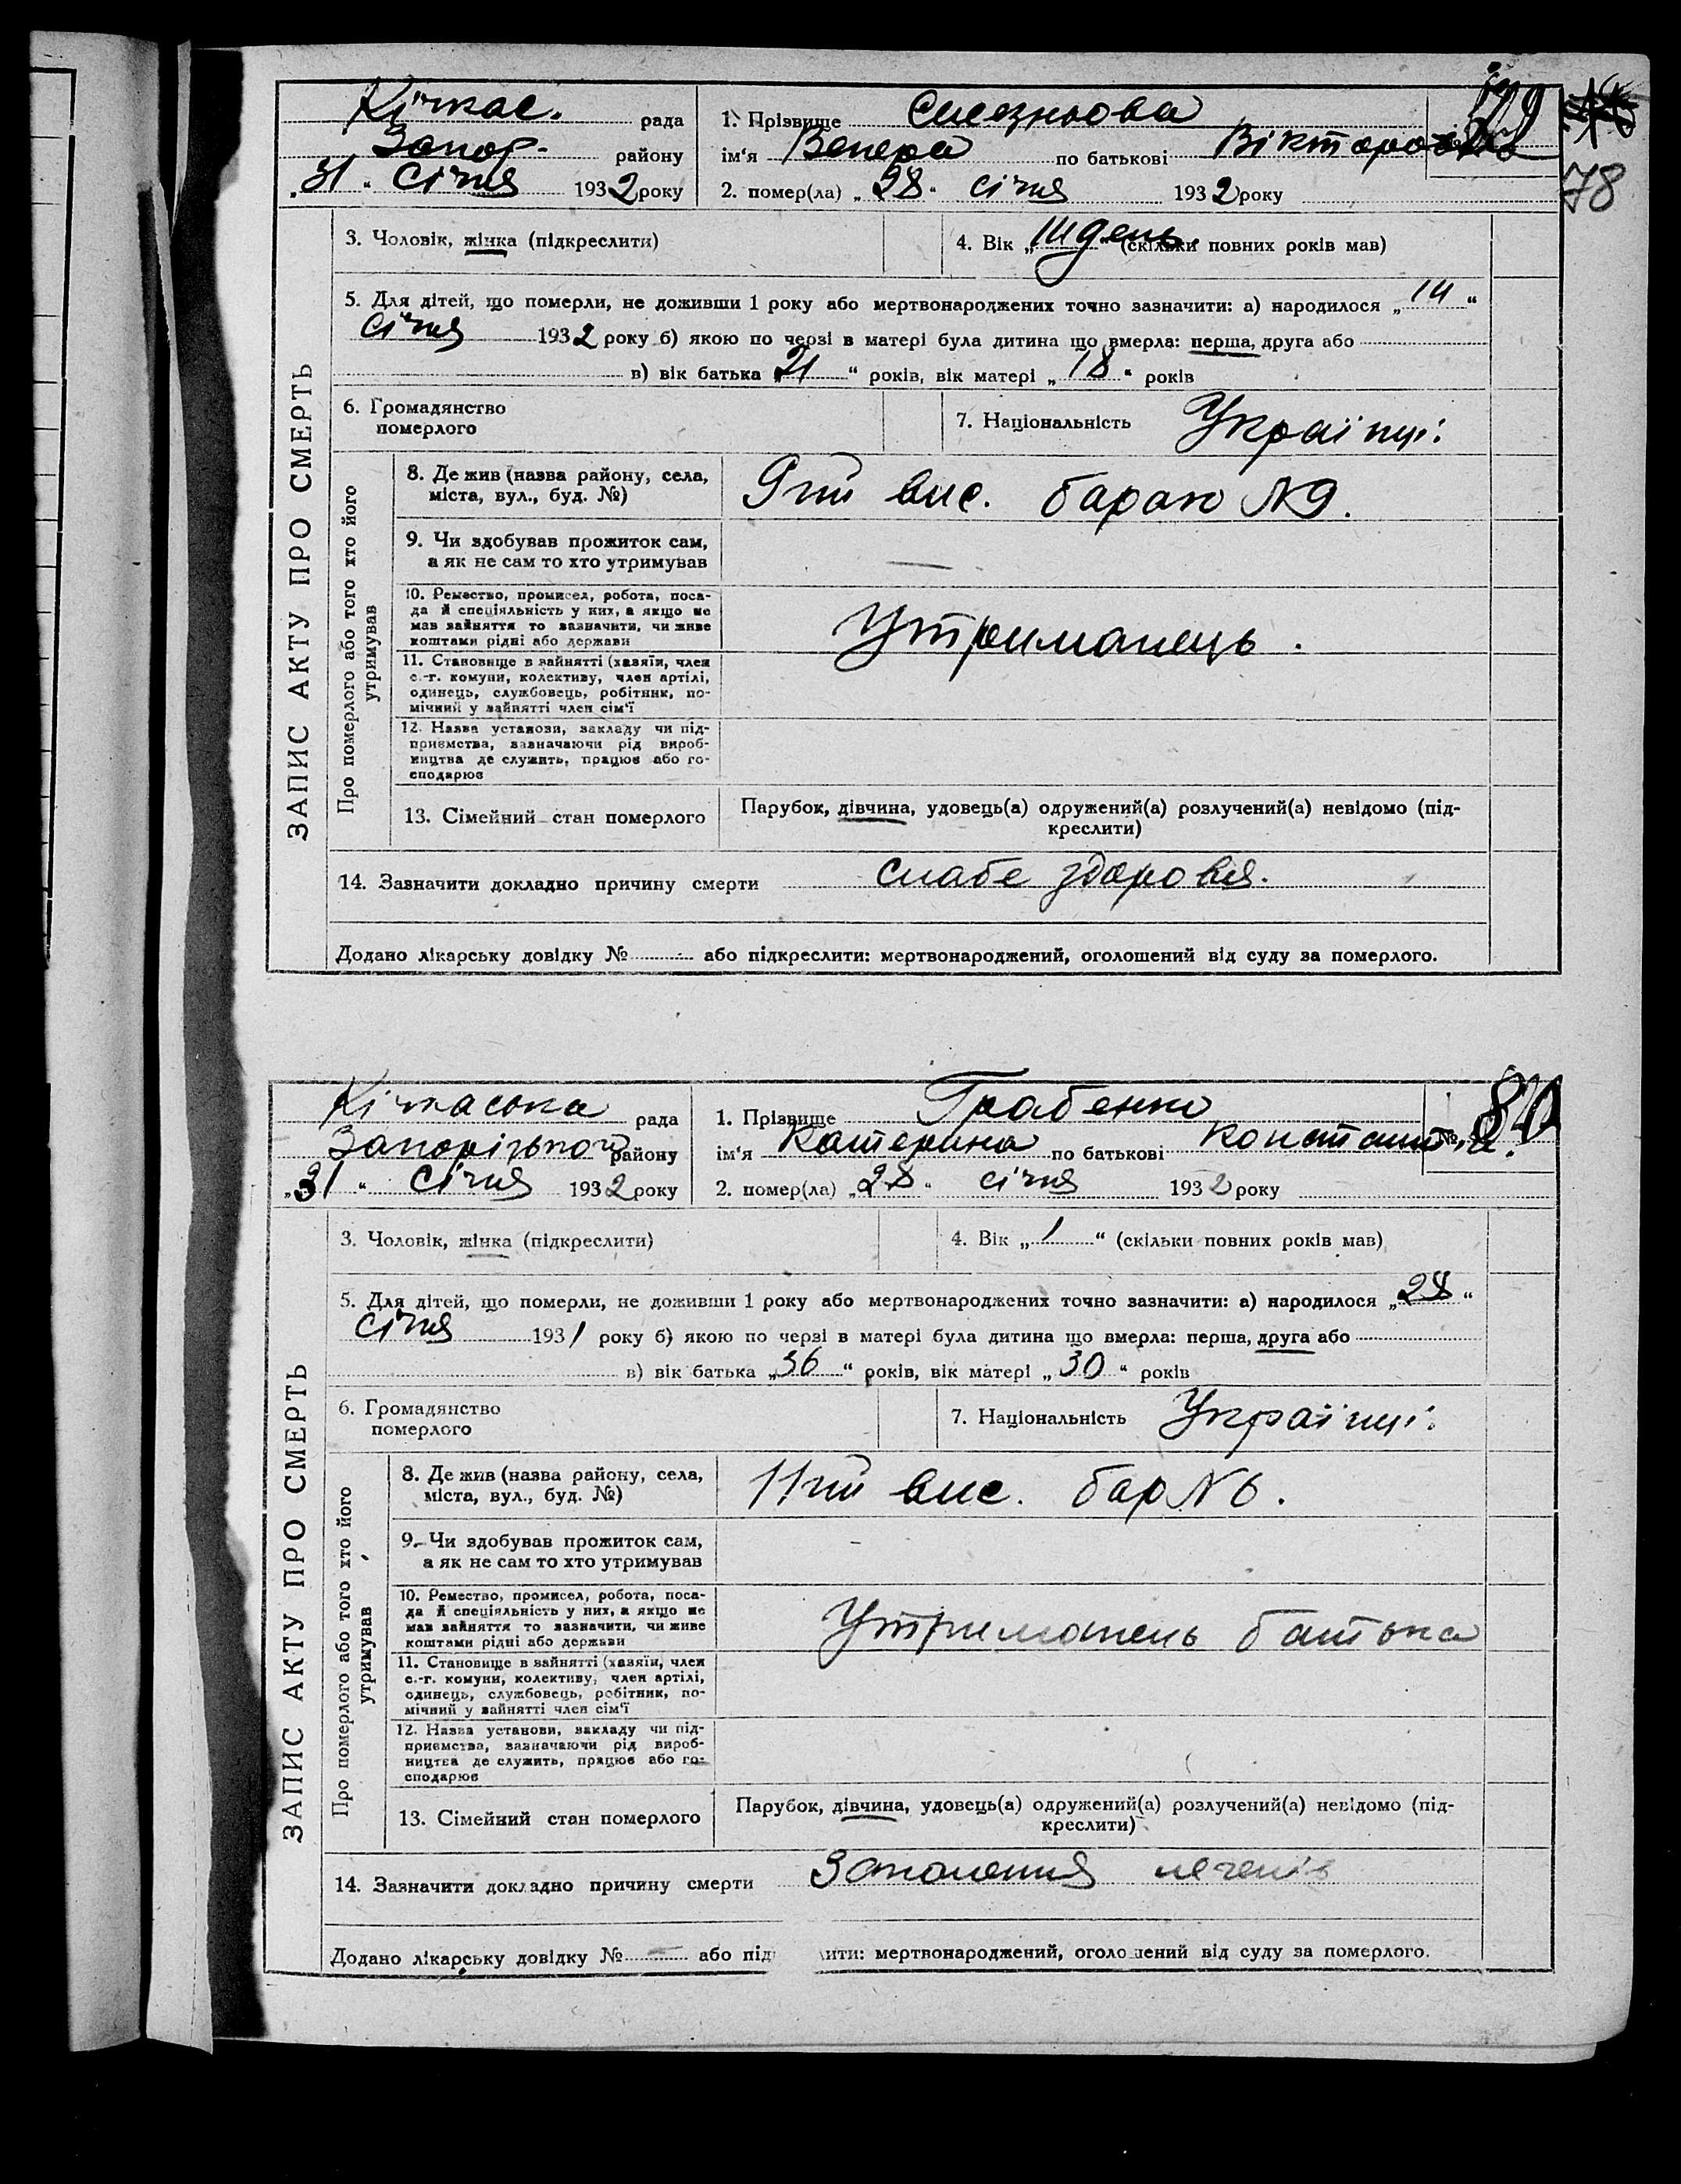 Кічкас. рада
Запор. району
„31“ Січня 1932 року
1. Прізвище Слезньова
ім‘я Венера по батькові Вікторовна
2. помер(ла) „28“ січня 1932 року
78
3. Чоловік, жінка (підкреслити)
4. Вік „14 день.“ (скільки повних років мав)
5. Для дітей, що померли, не доживши 1 року або мертвонароджених точно зазначити: а) народилося „14“
Січня 1932 року б) якою по черзі в матері була дитина що вмерла: перша, друга або
в) вік батька „21“ років, вік матері „18“ років
6. Громадянство
померлого
7. Національність Українці.
ЗАПИС АКТУ ПРО СМЕРТЬ
Про померлого або того хто його
утримував
8. Де жив (назва району, села,
міста, вул., буд. №)
9тий вис. барак №9.
9. Чи здобував прожиток сам,
а як не сам то хто утримував
—
10. Ремество, промисел, робота, поса-
да й спеціяльність у них, а якщо не
мав зайняття то зазначити, чи живе
коштами рідні або держави
Утриманець.
11. Становище в зайнятті (хазяїн, член
с.-г. комуни, колективу, член артілі,
одинець, службовець, робітник, по-
мічний у зайнятті член сім‘ї
12. Назва установи, закладу чи під-
приємства, зазначаючи рід вироб-
ництва де служить, працює або го-
сподарює
13. Сімейний стан померлого
Парубок, дівчина, удовець(а) одружений(а) розлучений(а) невідомо (під-
креслити)
14. Зазначити докладно причину смерти слабе здоровья.
Додано лікарську довідку № або підкреслити: мертвонароджений, оголошений від суду за померлого.
Кічкаська рада
Запорізького району
„31“ Січня 1932 року
1. Прізвище Грабенко
ім‘я Катерина по батькові Констант.
№ 80
2. помер(ла) „28“ січня 1932 року
3. Чоловік, жінка (підкреслити)
4. Вік „1“ (скільки повних років мав)
5. Для дітей, що померли, не доживши 1 року або мертвонароджених точно зазначити: а) народилося „28“
Січня 1931 року б) якою по черзі в матері була дитина що вмерла: перша, друга або
в) вік батька „36“ років, вік матері „30“ років
6. Громадянство
померлого
7. Національність Українці.
ЗАПИС АКТУ ПРО СМЕРТЬ
Про померлого або того хто його
утримував
8. Де жив (назва району, села,
міста, вул., буд. №)
11тий вис. бар №6.
9. Чи здобував прожиток сам,
а як не сам то хто утримував
10. Ремество, промисел, робота, поса-
да й спеціяльність у них, а якщо не
мав зайняття то зазначити, чи живе
коштами рідні або держави
Утриманець батька
11. Становище в зайнятті (хазяїн, член
с.-г. комуни, колективу, член артілі,
одинець, службовець, робітник, по-
мічний у зайнятті член сім‘ї
12. Назва установи, закладу чи під-
приємства, зазначаючи рід вироб-
ництва де служить, працює або го-
сподарює
13. Сімейний стан померлого
Парубок, дівчина, удовець(а) одружений(а) розлучений(а) невідомо (під-
креслити)
14. Зазначити докладно причину смерти Запалення легенів
Додано лікарську довідку № — або під ити: мертвонароджений, оголо ений від суду за померлого.